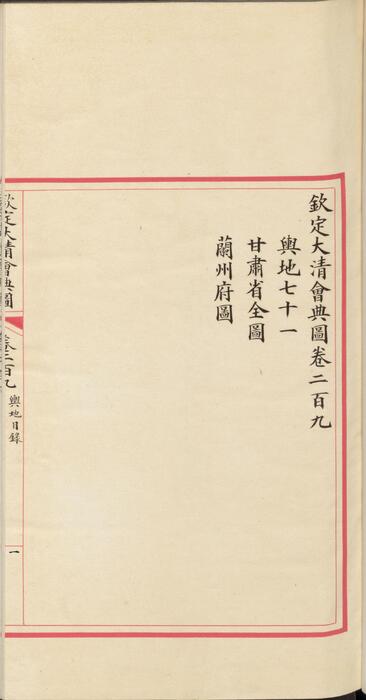 欽定大清會典圖卷二百九
輿地七十一
甘肅省全圖
蘭州府圖
欽定大清會典圖
卷二百九
輿地目錄
一